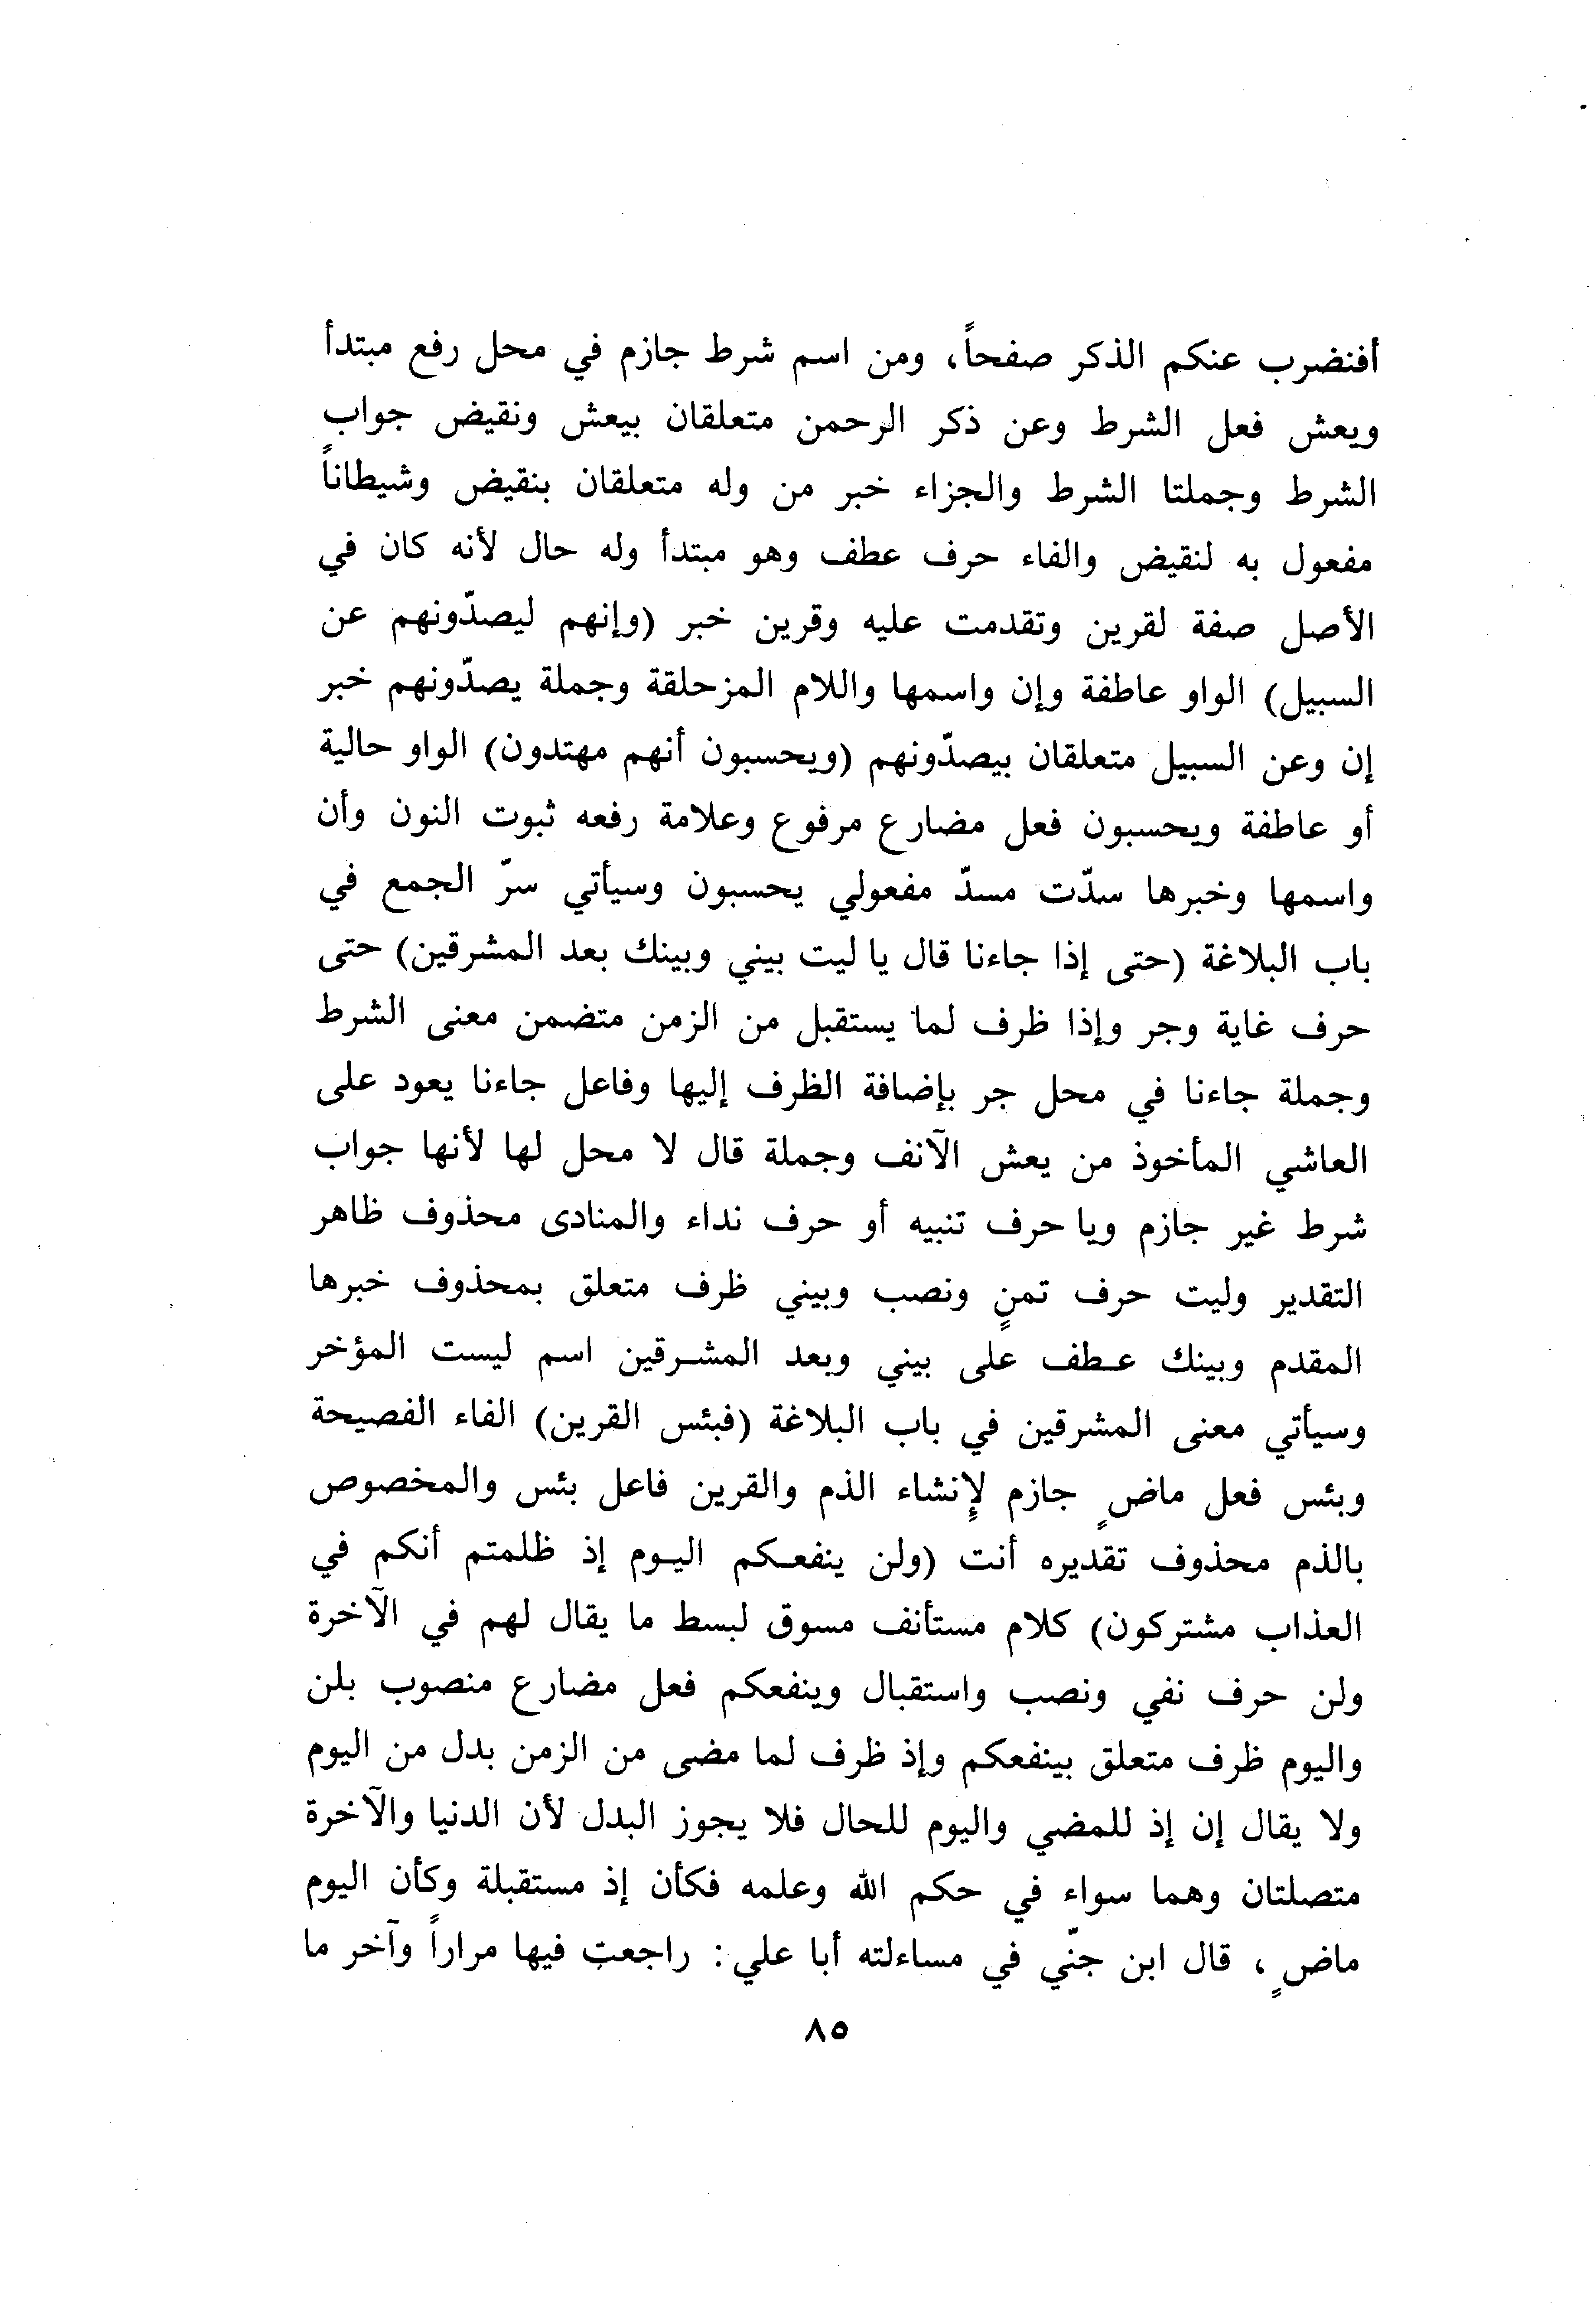 أفنضرب عنكم الذكر صفحاً، ومن اسم شرط جازم في محل رفع مبتدأ
ويعش فعل الشرط وعن ذكر الرحمن متعلقان بيعش ونقيض جواب
الشرط وجملتا الشرط والجزاء خبر من وله متعلقان بنقيض وشيطاناً
مفعول به لنقيض والفاء حرف عطف وهو مبتدأ وله حال لأنه كان في
الأصل صفة لقرين وتقدمت عليه وقرين خبر (وإنهم ليصدّونهم عن
السبيل) الواو عاطفة وإن واسمها واللام المزحلقة وجملة يصدّونهم خبر
إن وعن السبيل متعلقان بيصدّونهم (ويحسبون أنهم مهتدون) الواو حالية
أو عاطفة ويحسبون فعل مضارع مرفوع وعلامة رفعه ثبوت النون وأن
واسمها وخبرها سدّت مسدّ مفعولي يحسبون وسيأتي سرّ الجمع في
باب البلاغة (حتى إذا جاءنا قال يا ليت بيني وبينك بعد المشرقين) حتى
حرف غاية وجر وإذا ظرف لما يستقبل من الزمن متضمن معنى الشرط
وجملة جاءنا في محل جر بإضافة الظرف إليها وفاعل جاءنا يعود على
العاشي المأخوذ من يعش الآنف وجملة قال لا محل لها لأنها جواب
شرط غير جازم ويا حرف تنبيه أو حرف نداء والمنادى محذوف ظاهر
التقدير وليت حرف تمنٍ ونصب وبيني ظرف متعلق بمحذوف خبرها
المقدم وبينك عطف على بيني وبعد المشرقين اسم ليست المؤخر
وسيأتي معنى المشرقين في باب البلاغة (فبئس القرين) الفاء الفصيحة
وبئس فعل ماضٍ جازم لإنشاء الذم والقرين فاعل بئس والمخصوص
بالذم محذوف تقديره أنت (ولن ينفعكم اليوم إذ ظلمتم أنكم في
العذاب مشتركون) كلام مستأنف مسوق لبسط ما يقال لهم في الآخرة
ولن حرف نفي ونصب واستقبال وينفعكم فعل مضارع منصوب بلن
واليوم ظرف متعلق بينفعكم وإذ ظرف لما مضى من الزمن بدل من اليوم
ولا يقال إن إذ للمضي واليوم للحال فلا يجوز البدل لأن الدنيا والآخرة
متصلتان وهما سواء في حكم الله وعلمه فكأن إذ مستقبلة وكأن اليوم
ماضٍ، قال ابن جنّي في مساءلته أبا علي: راجعت فيها مراراً وآخر ما
٨٥